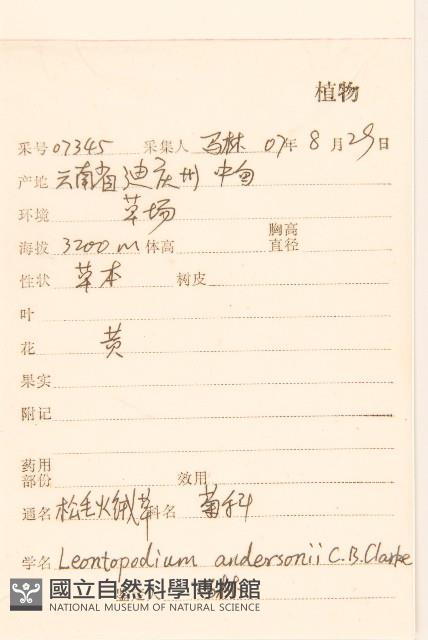 植物
采号 07345 采集人 马林 07年 8月29日
产地 云南省迪庆州 中甸
环境 草场
海拔 3200m 体高 胸高直径
性状 草本 树皮
叶
花 黄
果实
附记
药用部份 效用
通名 松毛火绒草 科名 菊科
学名 Leontopodium andersonii C.B.Clarke
國立自然科學博物館
NATIONAL MUSEUM OF NATURAL SCIENCE